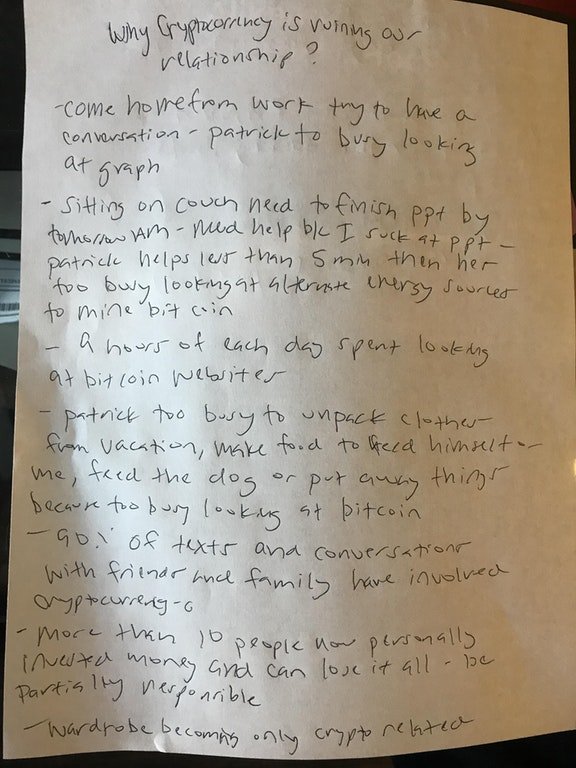 Why Cryptocorrency is ruining our
relationship?
- Come home from work try to have a
conversation - patrick to busy looking
at graph
- Sitting on couch need to finish ppt by
tomorrow AM - need help b/c I suck at ppt -
patrick helps less than 5 min then her
too busy looking at alternate energy sources
to mine bit coin
- 9 hours of each day spent looking
at bitcoin websites
- patrick too busy to unpack clothes
from vacation, make food to feed himself or
me, feed the dog or put away things
because too busy looking at bitcoin
- 90% of texts and conversations
with friends and family have involved
cryptocurrency
- More than 10 people now personally
invested money and can lose it all - be
partially responsible
- Wardrobe becoming only crypto related